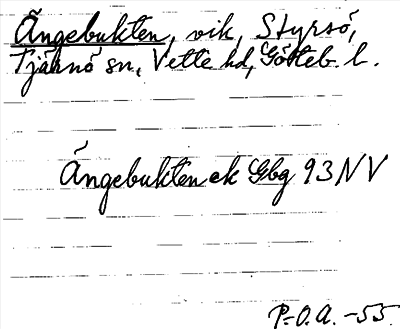 Ängebukten, vik, Styrsö,
Tjärnö sn, Vette hd, Göteb. l.
Ängebukten ek Gbg 93 NV
P.O.A. -55.